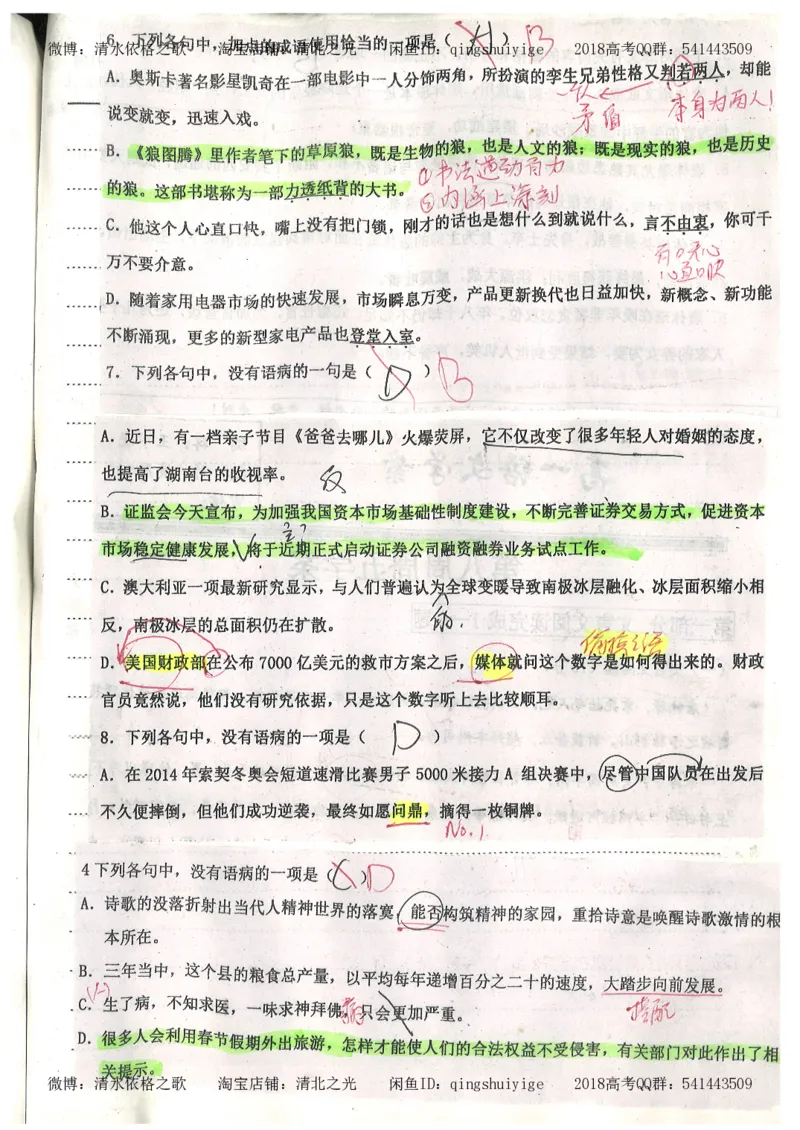 微博：清水依格之歌 淘宝店铺：清北之光 闲鱼ID：qingshuiyige 2018高考QQ群：541443509
6．下列各句中，加点的成语使用恰当的一项是（ ） B
A．奥斯卡著名影星凯奇在一部电影中一人分饰两角，所扮演的孪生兄弟性格又判若两人，却能
矛盾 本身为两人！
说变就变，迅速入戏。
B．《狼图腾》里作者笔下的草原狼，既是生物的狼，也是人文的狼；既是现实的狼，也是历史
①书法遒劲有力
的狼。这部书堪称为一部力透纸背的大书。
②内涵上深刻
C．他这个人心直口快，嘴上没有把门锁，刚才的话也是想什么到就说什么，言不由衷，你可千
有口无心
万不要介意。
心直口快
D．随着家用电器市场的快速发展，市场瞬息万变，产品更新换代也日益加快，新概念、新功能
不断涌现，更多的新型家电产品也登堂入室。
7．下列各句中，没有语病的一句是（ D ） B
A．近日，有一档亲子节目《爸爸去哪儿》火爆荧屏，它不仅改变了很多年轻人对婚姻的态度，
也提高了湖南台的收视率。 反
B．证监会今天宣布，为加强我国资本市场基础性制度建设，不断完善证券交易方式，促进资本
主？？
市场稳定健康发展，将于近期正式启动证券公司融资融券业务试点工作。
C．澳大利亚一项最新研究显示，与人们普遍认为全球变暖导致南极冰层融化、冰层面积缩小相
反，南极冰层的总面积仍在扩散。 的．
D．美国财政部在公布 7000 亿美元的救市方案之后，媒体就问这个数字是如何得出来的。财政
官员竟然说，他们没有研究依据，只是这个数字听上去比较顺耳。
8．下列各句中，没有语病的一项是（ D ）
A．在 2014 年索契冬奥会短道速滑比赛男子 5000 米接力 A 组决赛中，尽管中国队员在出发后
不久便摔倒，但他们成功逆袭，最终如愿问鼎，摘得一枚铜牌。
No.1
4 下列各句中，没有语病的一项是（C）D
A．诗歌的没落折射出当代人精神世界的落寞，能否构筑精神的家园，重拾诗意是唤醒诗歌激情的根
本所在。
B．三年当中，这个县的粮食总产量，以平均每年递增百分之二十的速度，大踏步向前发展。
搭配
C．生了病，不知求医，一味求神拜佛，病只会更加严重。
D．很多人会利用春节假期外出旅游，怎样才能使人们的合法权益不受侵害，有关部门对此作出了相
关提示。
微博：清水依格之歌 淘宝店铺：清北之光 闲鱼ID：qingshuiyige 2018高考QQ群：541443509